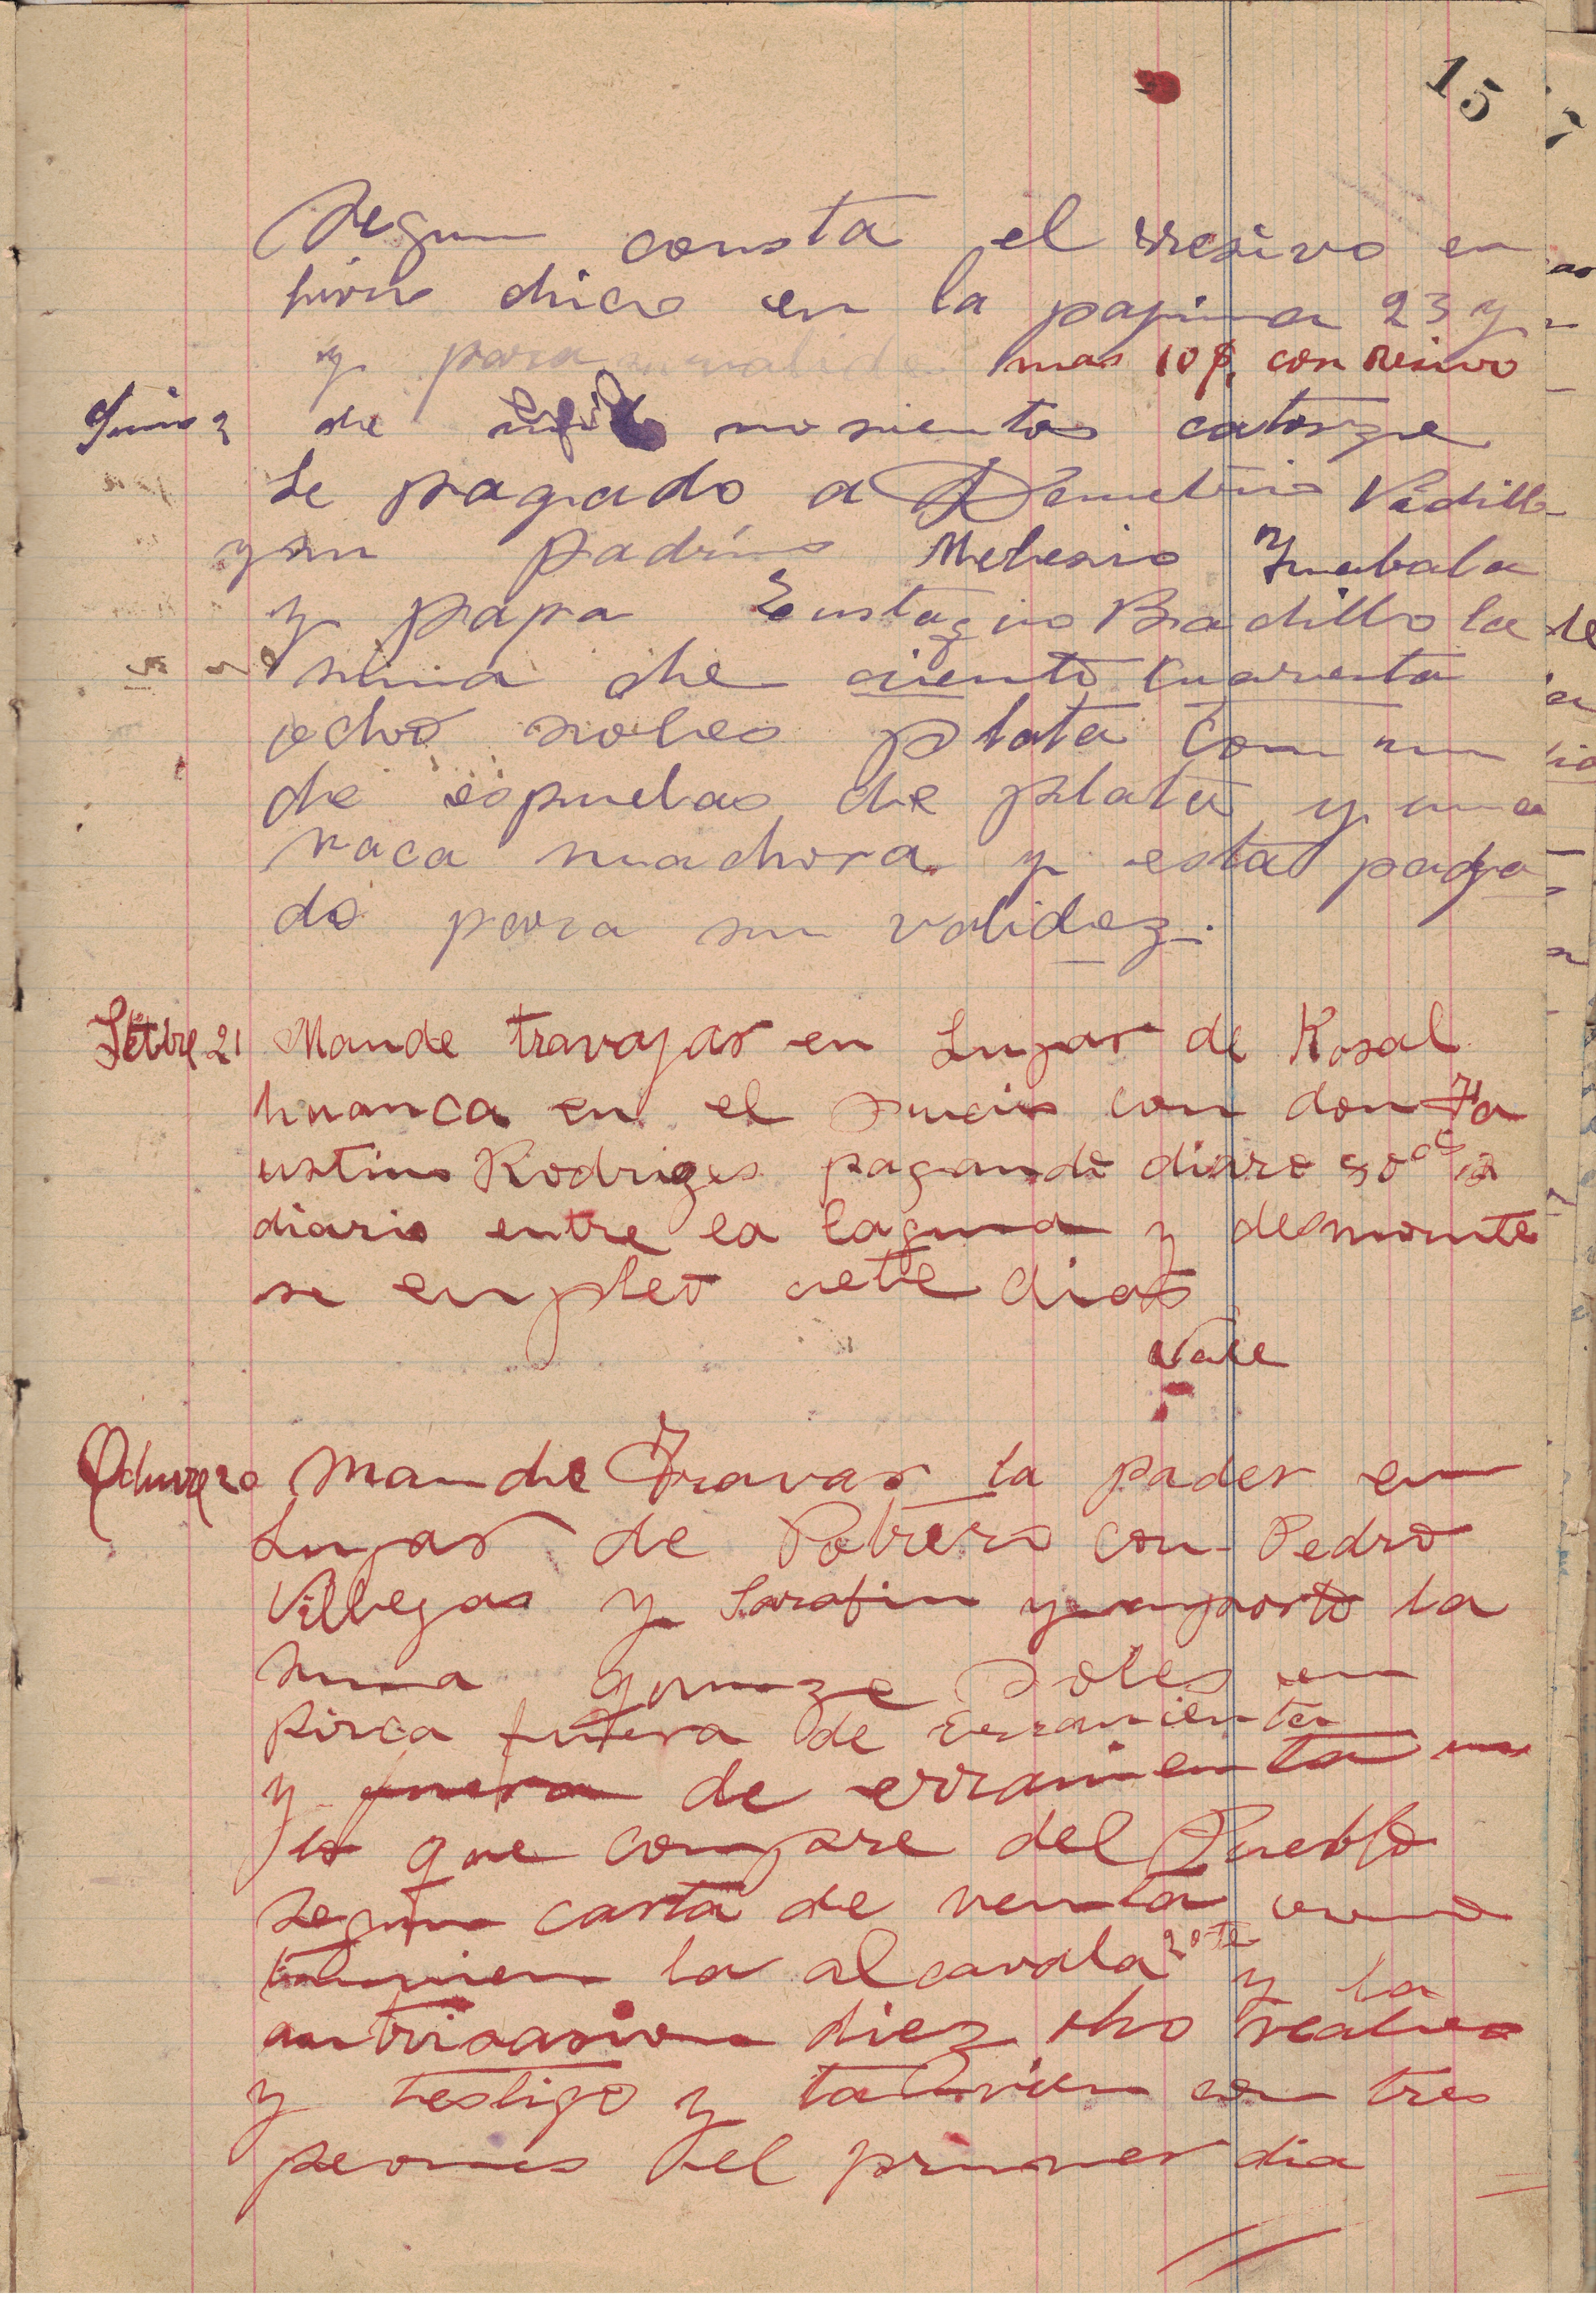 15
Segun consta el rresivo en
livro chico en la pajina 23 y
y para mas 10 $. con resivo
Junio 2 de mil nosientos catorze
Se pagado a Demetrio Vadillo
y su padrino Melesio Zuabala
y papa Eustaqio Badillo la
suma de ciento cuarenta
ochos soles plata con un
de espuelas de plata y una
vaca machora y esta paga
do para su validez.
Setbre 21 Mande travajar en Lugar de Rosal
huanca en el sucio con don Fa
ustino Rodriges pagando diaro 50
diario entre la laguna y desmonte
se enpleo siete dias
Vale
Octuvre 20 Mande Travar la pader en
Lugar de Potrero con Pedro
Villegas y Sarafin y inporto la
suma quinze soles en
pirca fuera de erramienta
y fuera de erramienta
lo que compre del Pueblo
segun carta de venta como
tamvien la alcavala y la
autorisasion diez ocho reales
y testigo y tamvien con tres
peones el primer dia